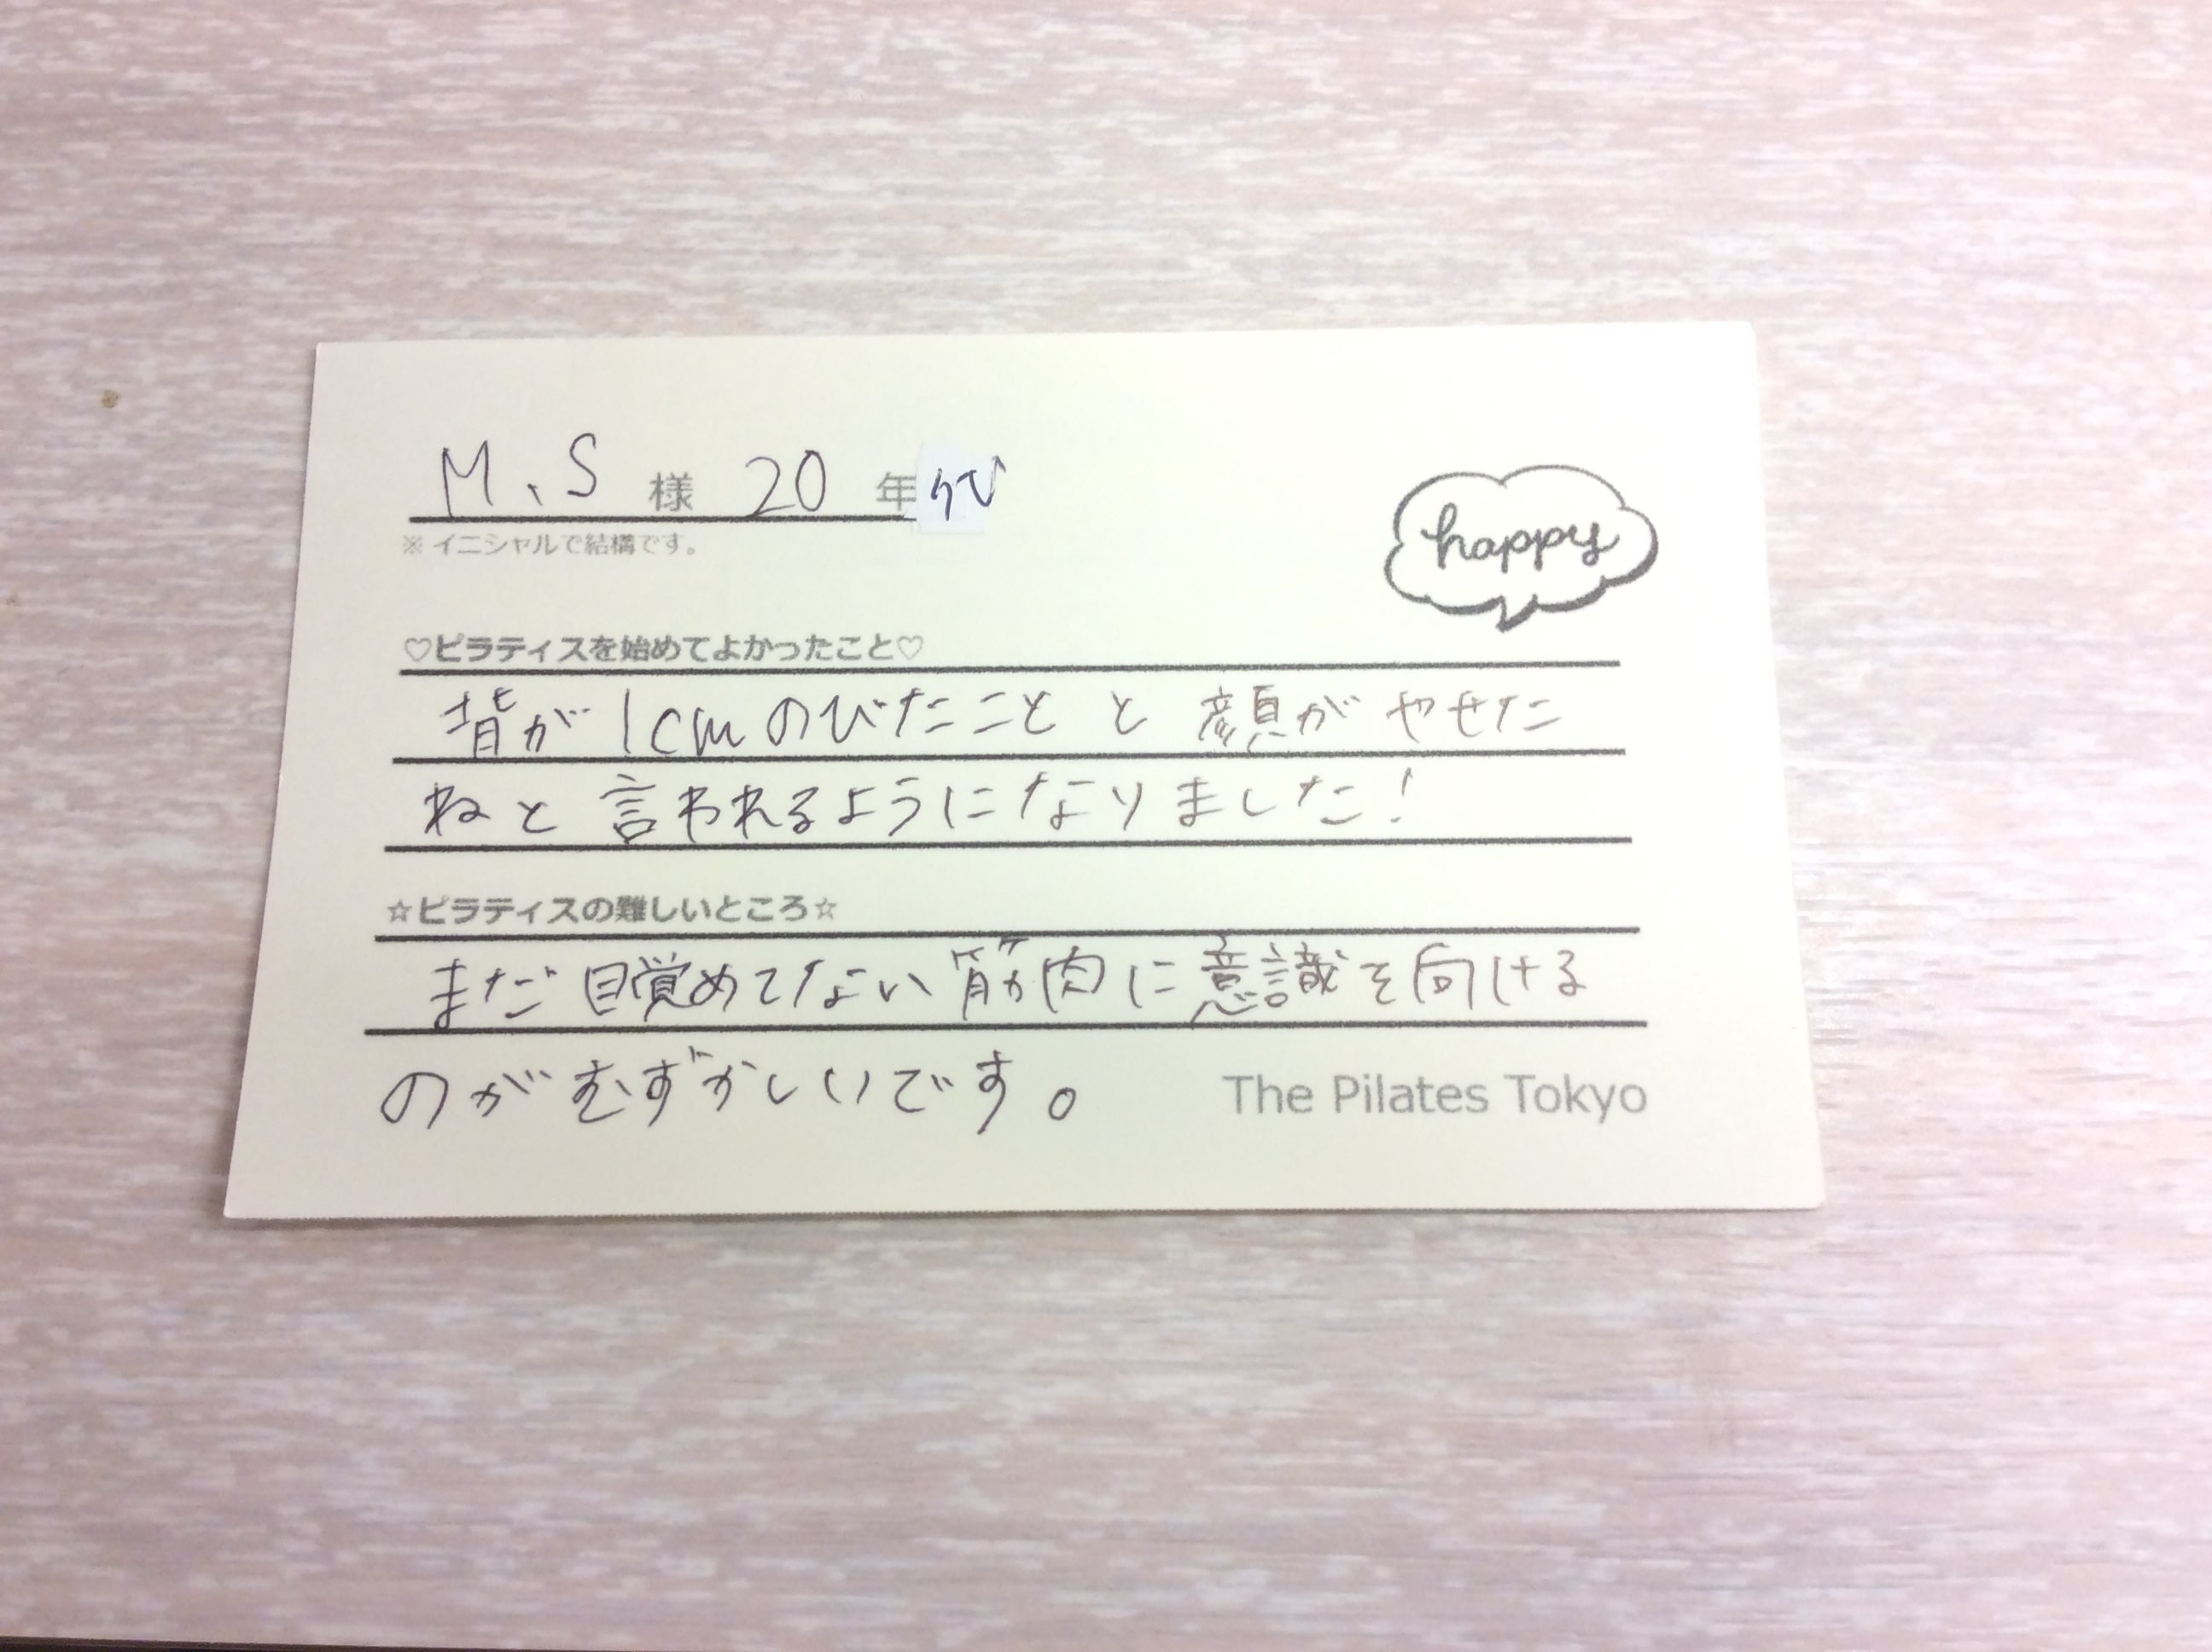 M、S 様 20 年代
※ イニシャルで結構です。
happy
♡ピラティスを始めてよかったこと♡
背が1cmのびたことと顔がやせた
ねと言われるようになりました!
☆ピラティスの難しいところ☆
まだ目覚めてない筋肉に意識を向ける
のがむずかしいです。
The Pilates Tokyo